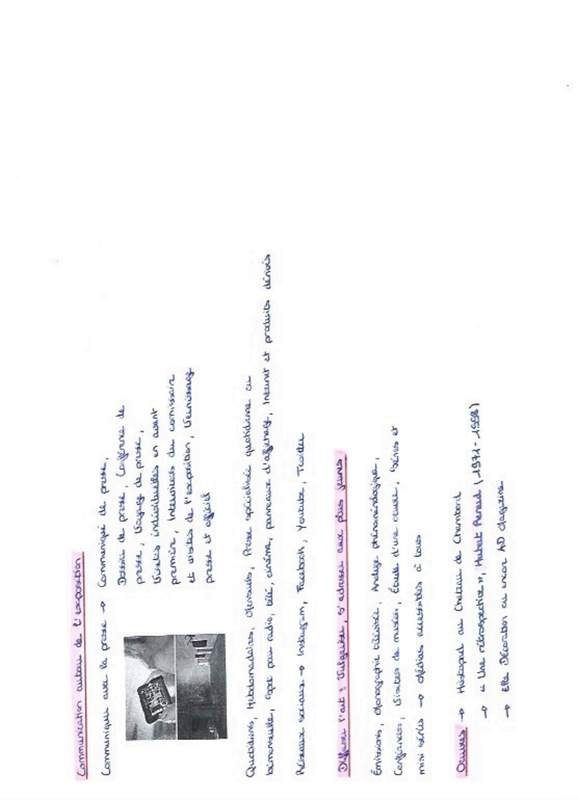 Communication autour de l'exposition
Communiquer avec la presse → Communiqué de presse,
Dossier de presse, Conférence de
presse, Voyage de presse,
Visites individuelles en avant
première, Interviews du comissaire
et visites de l'exposition, Vernissage
presse et officiel
Quotidiens, Hebdomadaires, Mensuels, Presse spécialisée quotidienne ou
bimensuelle, radio, télé, cinéma, panneaux d'affichage, Internet et produits dérivés
Réseaux sociaux → Instagram, Facebook, Youtube, Twitter
Diffuser l'art : Vulgariser, s'adresser aux plus jeunes
Émissions, Monographie télévisée, Analyse phénoménologique,
Conférences, Visites de musées, Étude d'une œuvre, Séries et
mini séries → Médias accessibles à tous
Œuvres → au Chateau de Chambord
→ « Une rétrospective », (1971-1998)
→ Elle Décoration ou encore AD Magazine